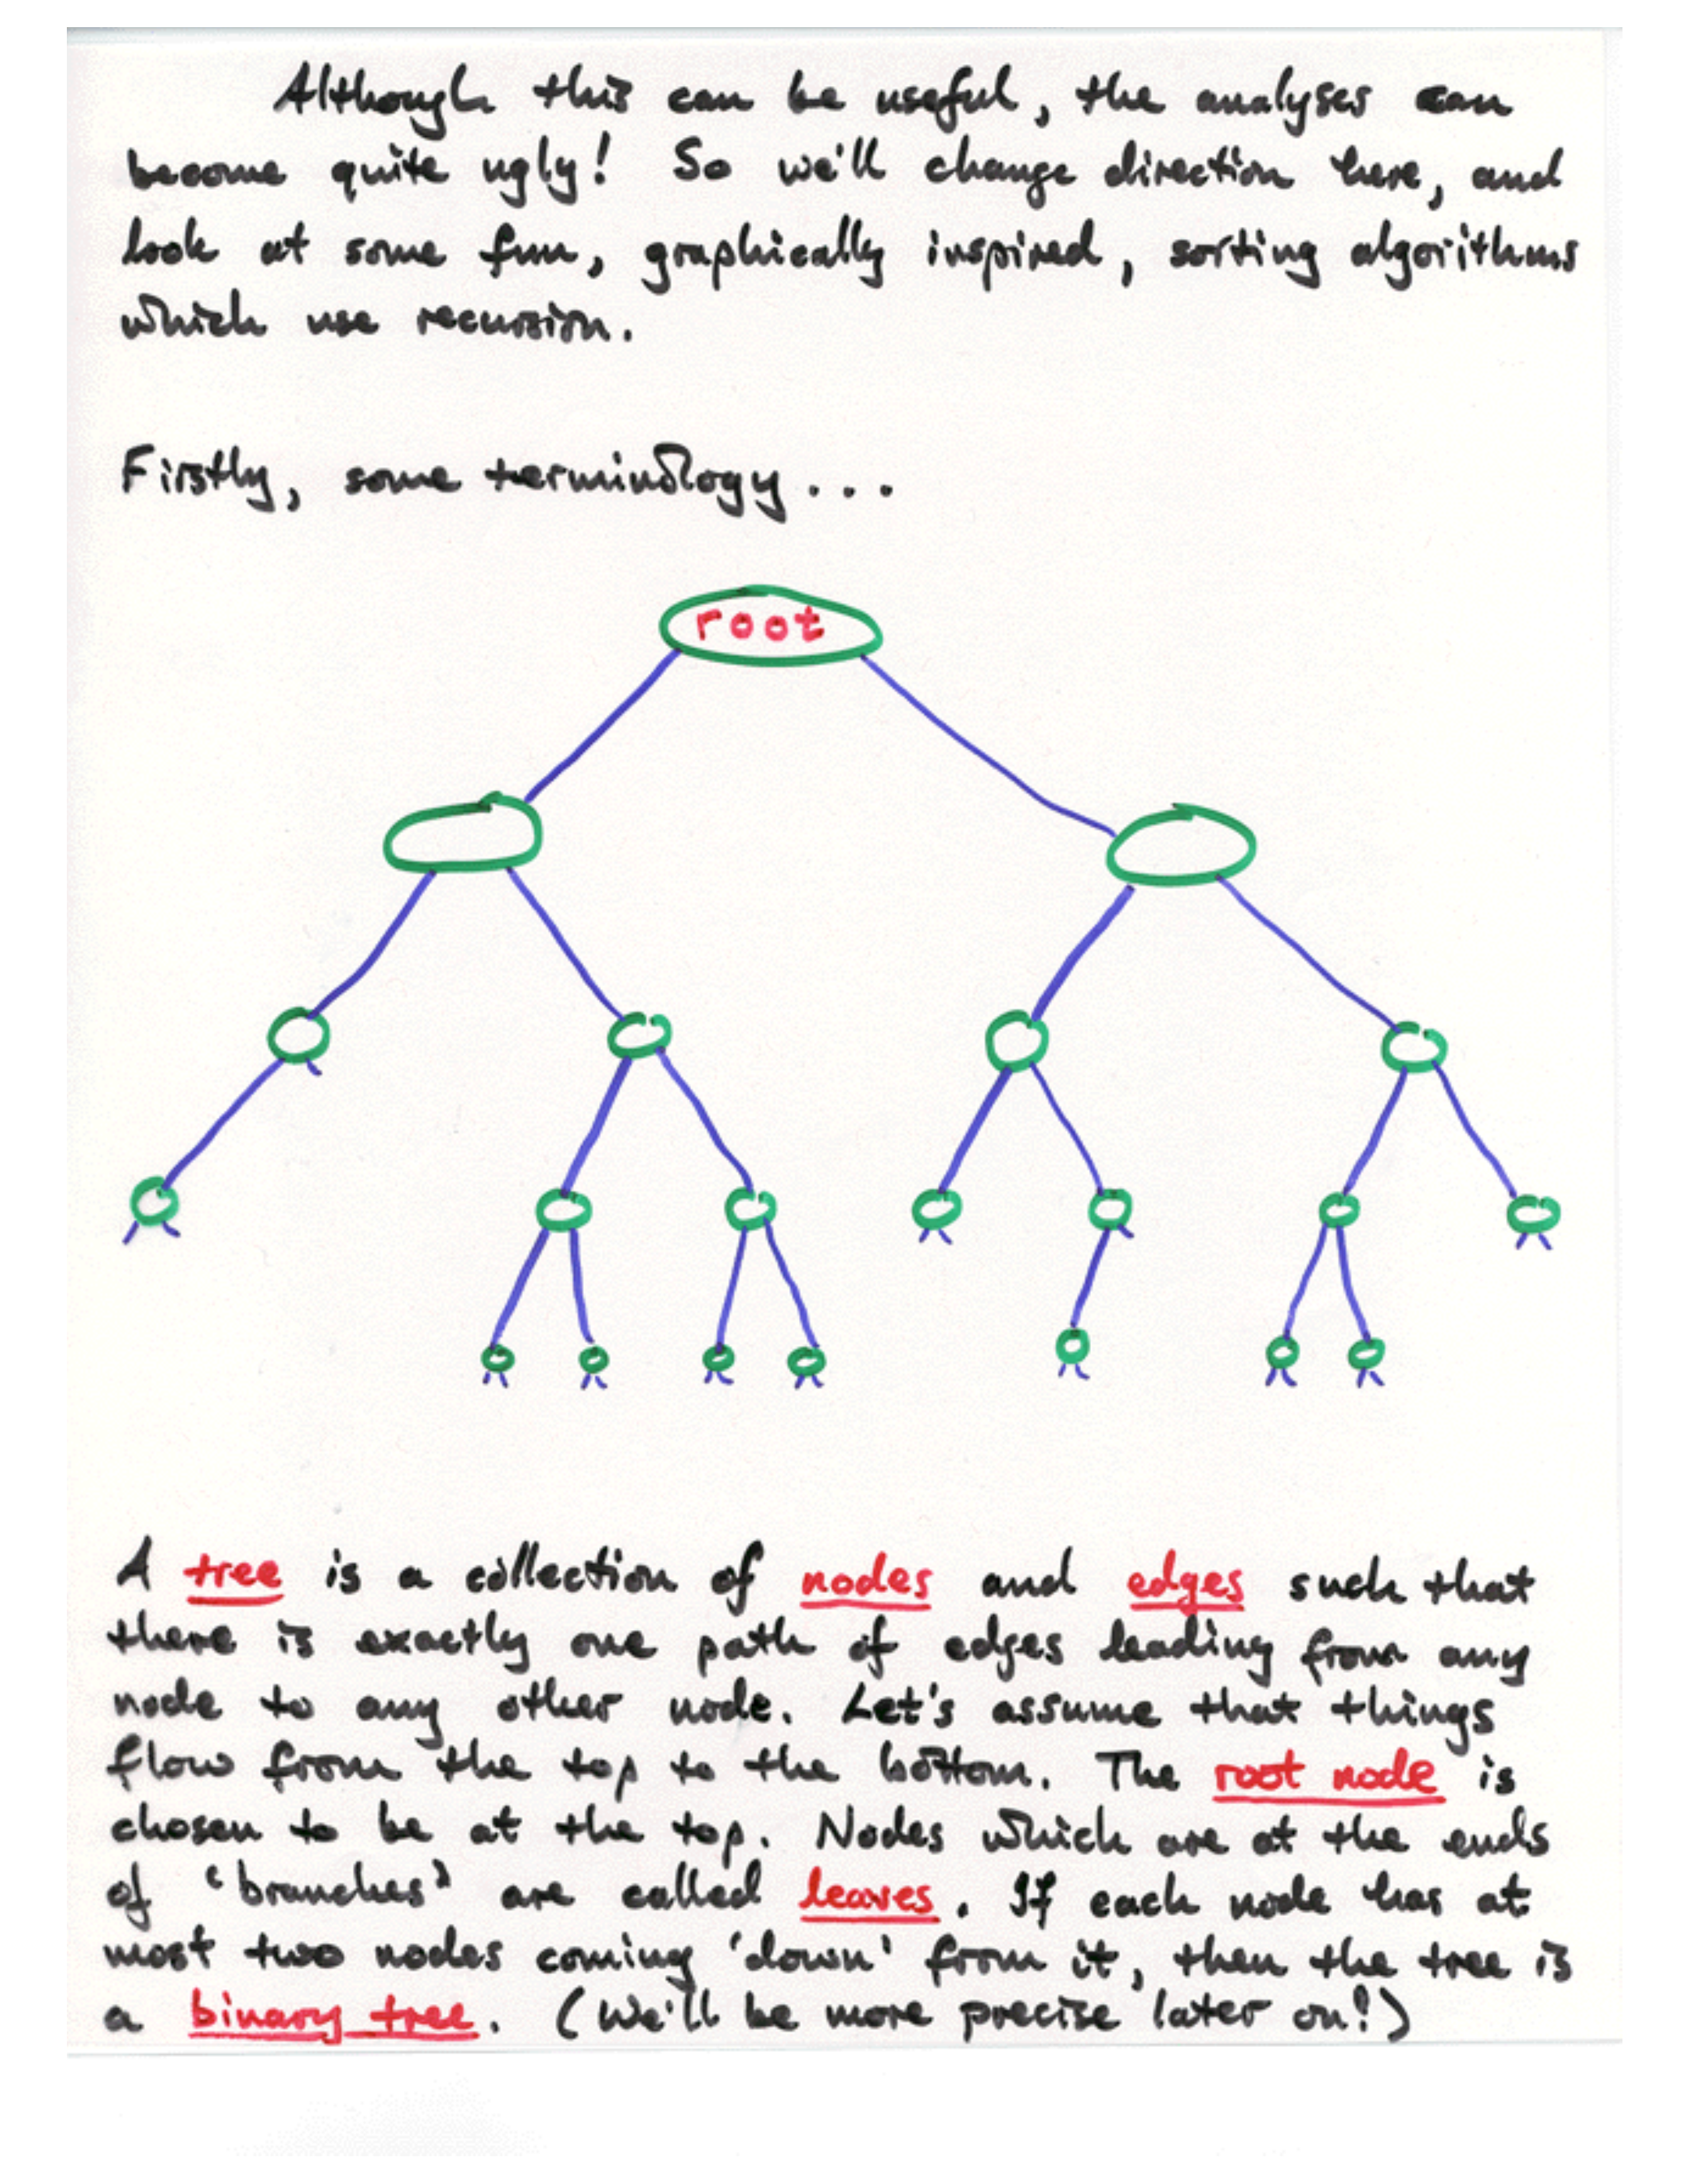 Although this can be useful, the analyses can
become quite ugly! So we'll change direction here, and
look at some fun, graphically inspired, sorting algorithms
which use recursion.
Firstly, some terminology...
root
A tree is a collection of nodes and edges such that
there is exactly one path of edges leading from any
node to any other node. Let's assume that things
flow from the top to the bottom. The root node is
chosen to be at the top. Nodes which are at the ends
of 'branches' are called leaves. If each node has at
most two nodes coming 'down' from it, then the tree is
a binary tree. (We'll be more precise later on!)